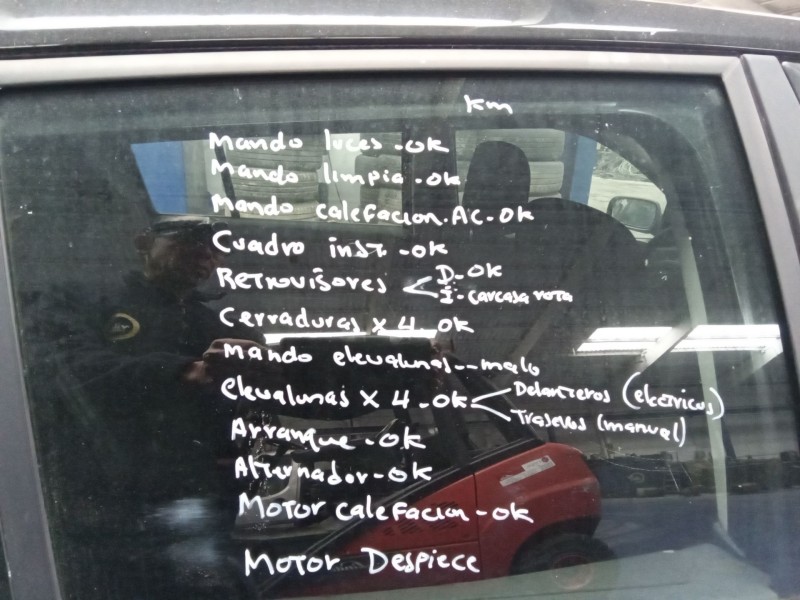 Km
Mando luces - OK
Mando limpia - OK
Mando calefacion. AC - OK
Cuadro inst. - OK
Retrovisores D - OK
I - carcasa rota
Cerraduras x 4 - OK
Mando elevalunas -- malo
elevalunas x 4 - OK Delanteros (electricos)
Traseros (manual)
Arranque - OK
Alternador - OK
Motor calefacion - OK
Motor Despiece